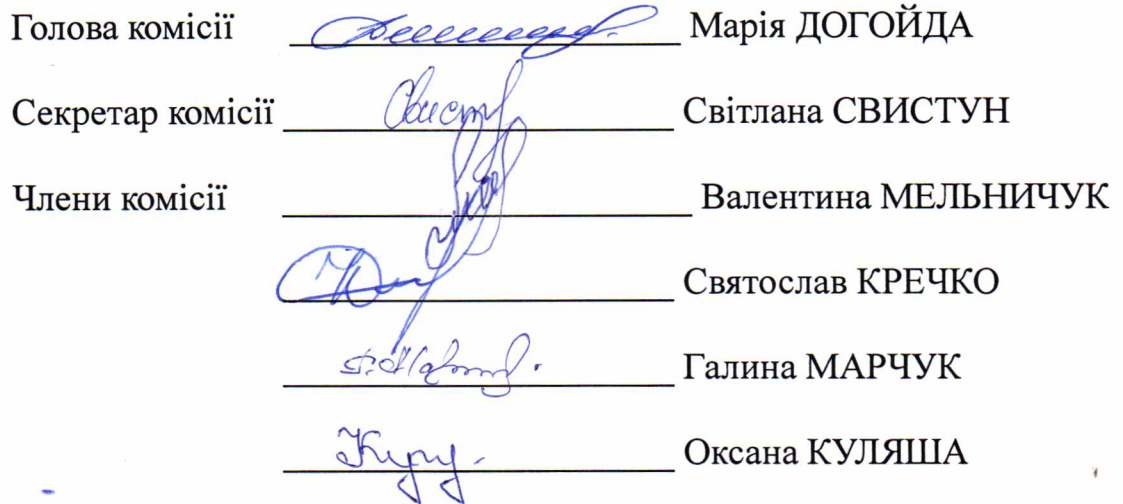 Голова комісії Марія ДОГОЙДА
Секретар комісії Світлана СВИСТУН
Члени комісії Валентина МЕЛЬНИЧУК
Святослав КРЕЧКО
Галина МАРЧУК
Оксана КУЛЯША